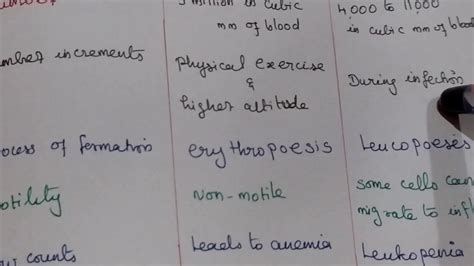 million in cubic
mm of blood
4,000 to 11,000
in cubic mm of blood
increments
Physical exercise
&
higher altitude
During infection
of formation
erythropoesis
Leucopoesès
Non-motile
some cells can
migrate to
counts
Leads to anemia
Leukopenia